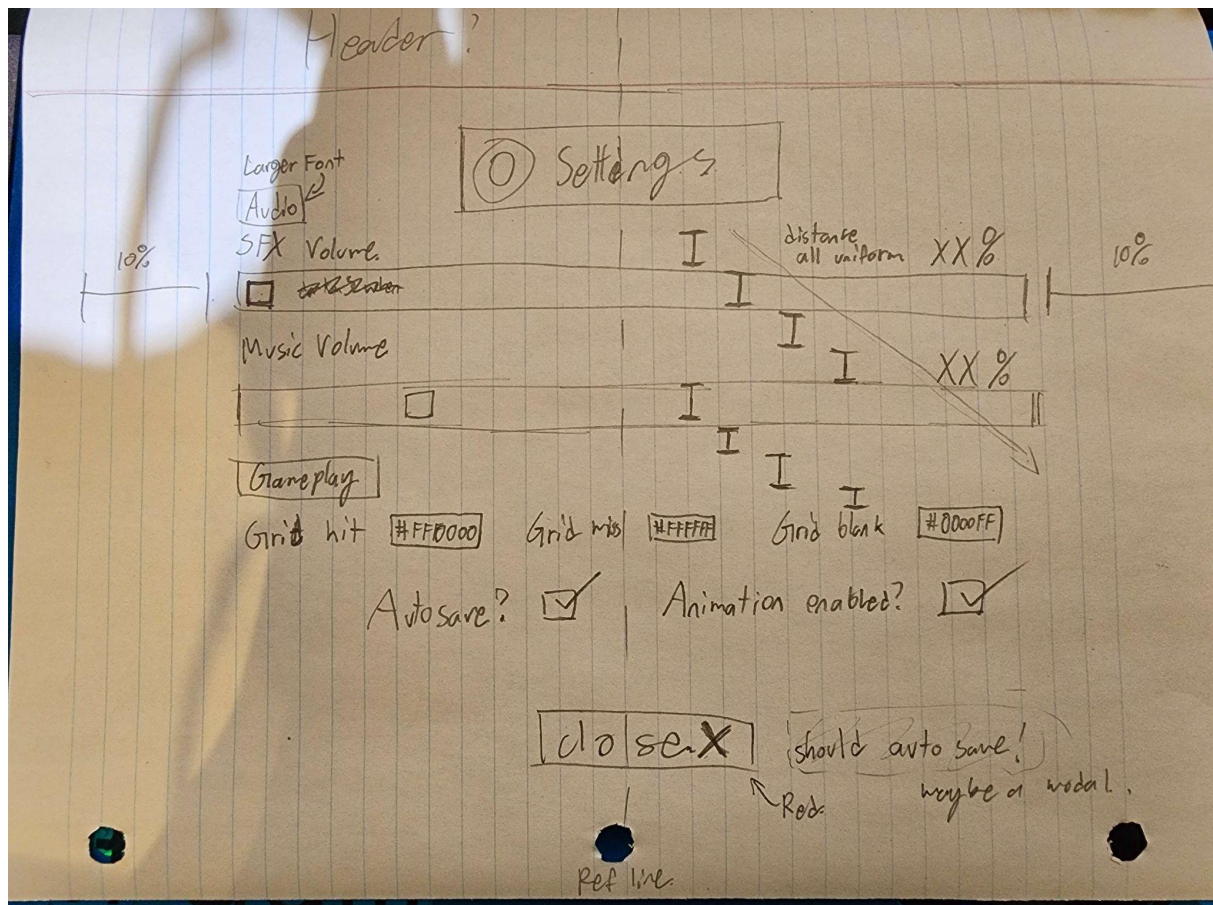 Header?
Settings
Larger Font
Audio
SFX Volume.
distance
all uniform
XX%
10%
10%
Music Volume
XX%
Gameplay
Grid hit #FF0000 Grid miss #FFFFFF Grid blank #0000FF
Autosave? Animation enabled?
close X
should auto save!
maybe a modal.
Red.
Ref line.